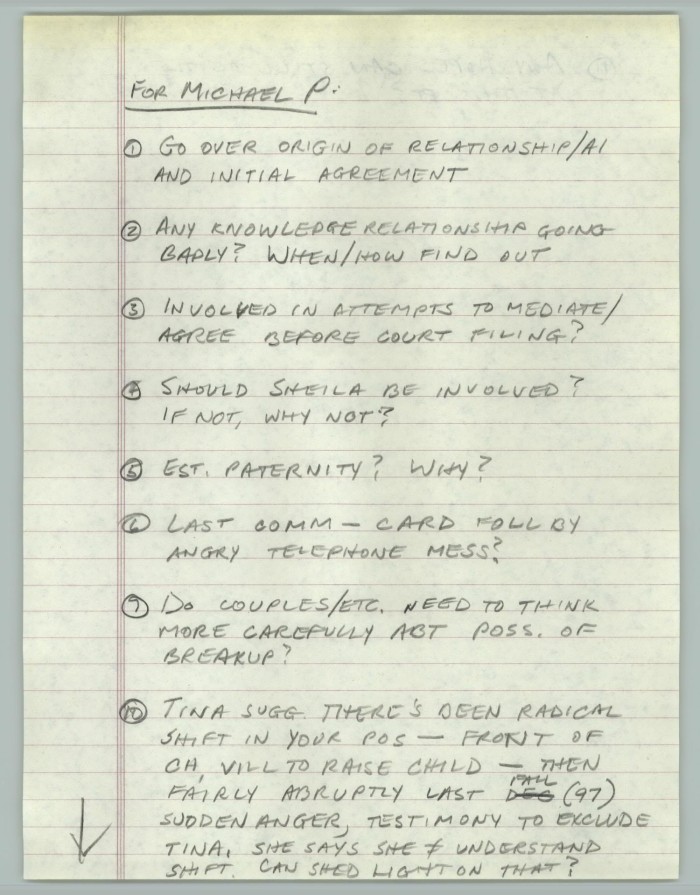 FOR MICHAEL P:
① GO OVER ORIGIN OF RELATIONSHIP/AI
AND INITIAL AGREEMENT
② ANY KNOWLEDGE RELATIONSHIP GOING
BADLY? WHEN/HOW FIND OUT
③ INVOLVED IN ATTEMPTS TO MEDIATE/
AGREE BEFORE COURT FILING?
④ SHOULD SHEILA BE INVOLVED?
IF NOT, WHY NOT?
⑤ EST. PATERNITY? WHY?
⑥ LAST COMM – CARD FOLL BY
ANGRY TELEPHONE MESS?
⑨ DO COUPLES/ETC. NEED TO THINK
MORE CAREFULLY ABT POSS. OF
BREAKUP?
⑩ TINA SUGG. THERE'S BEEN RADICAL
SHIFT IN YOUR POS – FRONT OF
CH, VILL TO RAISE CHILD – THEN
FALL
FAIRLY ABRUPTLY LAST DEC (97)
SUDDEN ANGER, TESTIMONY TO EXCLUDE
TINA. SHE SAYS SHE ≠ UNDERSTAND
SHIFT. CAN SHED LIGHT ON THAT?